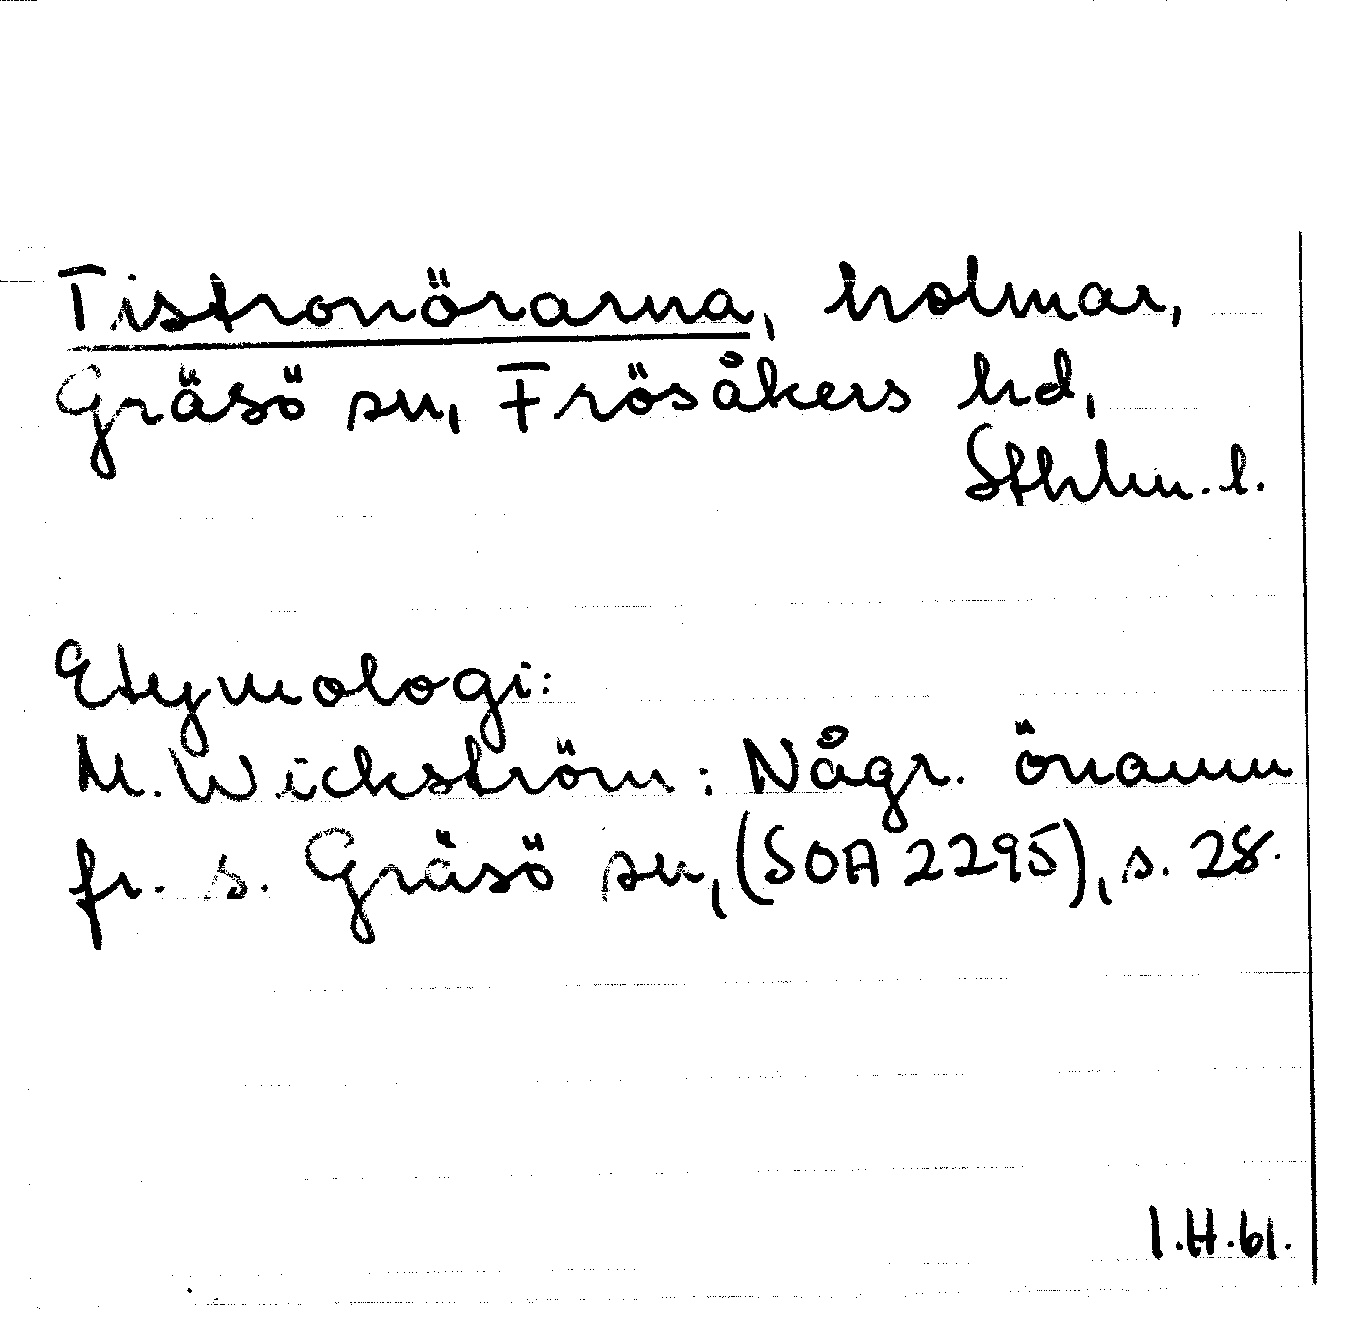 Tistronörarna, holmar,
Gräsö sn, Frösåkers hd,
Sthlm. l.
Etymologi:
M. Wickström: Någr. önamn
fr. s. Gräsö sn, (SOA 2295), s. 28.
I.H.61.